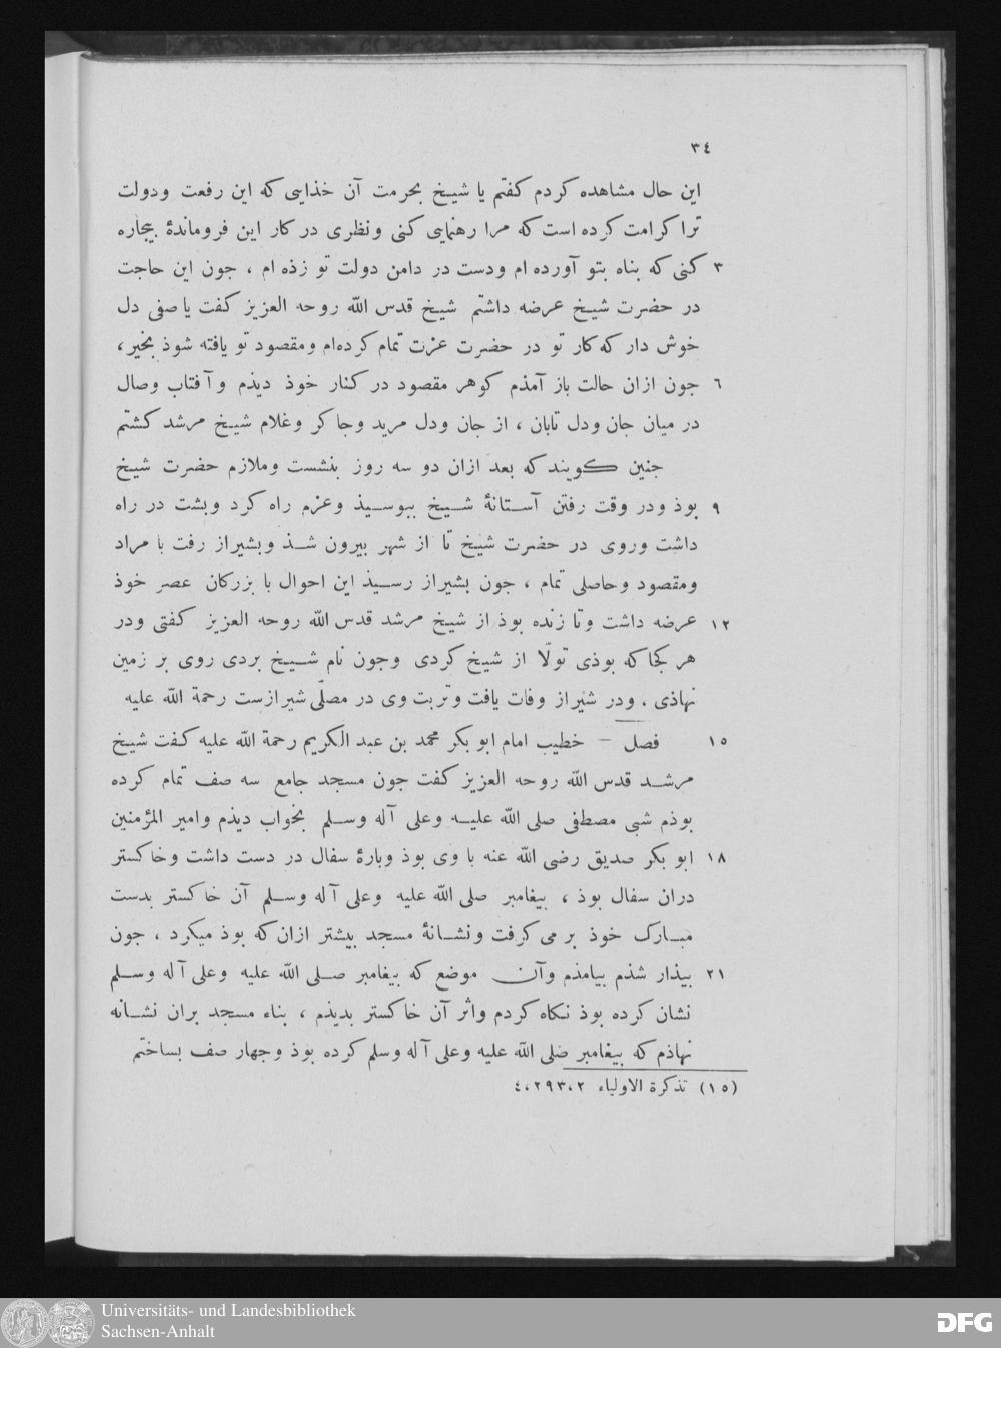 ٣٤
این حال مشاهده کردم کفتم یا شیخ بحرمت آن خذایی که این رفعت ودولت
ترا کرامت کرده است که مرا رهنمایی کنی ونظری در کار این فروماندۀ بیجاره
٣ کنی که بناه بتو آورده ام ودست در دامن دولت تو زذه ام ، جون این حاجت
در حضرت شیخ عرضه داشتم شیخ قدس الله روحه العزیز کفت یا صفی دل
خوش دار که کار تو در حضرت عزت تمام کرده‌ام ومقصود تو یافته شوذ بخیر،
٦ جون ازان حالت باز آمذم کوهر مقصود در کنار خوذ دیذم و آفتاب وصال
در میان جان ودل تابان ، از جان ودل مرید وجاکر وغلام شیخ مرشد کشتم
جنین کویند که بعد ازان دو سه روز بنشست وملازم حضرت شیخ
٩ بوذ ودر وقت رفتن آستانۀ شیخ ببوسیذ وعزم راه کرد وبشت در راه
داشت وروی در حضرت شیخ تا از شهر بیرون شذ وبشیراز رفت با مراد
ومقصود وحاصلی تمام ، جون بشیراز رسیذ این احوال با بزرکان عصر خوذ
١٢ عرضه داشت وتا زنده بوذ از شیخ مرشد قدس الله روحه العزیز کفتی ودر
هر کجا که بوذی تولّا از شیخ کردی وجون نام شیخ بردی روی بر زمین
نهاذی ، ودر شیراز وفات یافت وتربت وی در مصلّی شیرازست رحمة الله علیه
١٥ فصل – خطیب امام ابو بکر محمد بن عبد الکریم رحمة الله علیه کفت شیخ
مرشد قدس الله روحه العزیز کفت جون مسجد جامع سه صف تمام کرده
بوذم شبی مصطفی صلی الله علیه وعلی آله وسلم بخواب دیذم وامیر المؤمنین
١٨ ابو بکر صدیق رضی الله عنه با وی بوذ وبارۀ سفال در دست داشت وخاکستر
دران سفال بوذ ، بیغامبر صلی الله علیه وعلی آله وسلم آن خاکستر بدست
مبارک خوذ بر می کرفت ونشانۀ مسجد بیشتر ازان که بوذ میکرد ، جون
٢١ بیذار شذم بیامذم وآن موضع که بیغامبر صلی الله علیه وعلی آله وسلم
نشان کرده بوذ نکاه کردم واثر آن خاکستر بدیذم ، بناء مسجد بران نشانه
نهاذم که بیغامبر صلی الله علیه وعلی آله وسلم کرده بوذ وجهار صف بساختم
(١٥) تذکرة الاولیاء ٢،٢٩٣،٤
Universitäts- und Landesbibliothek
Sachsen-Anhalt
DFG